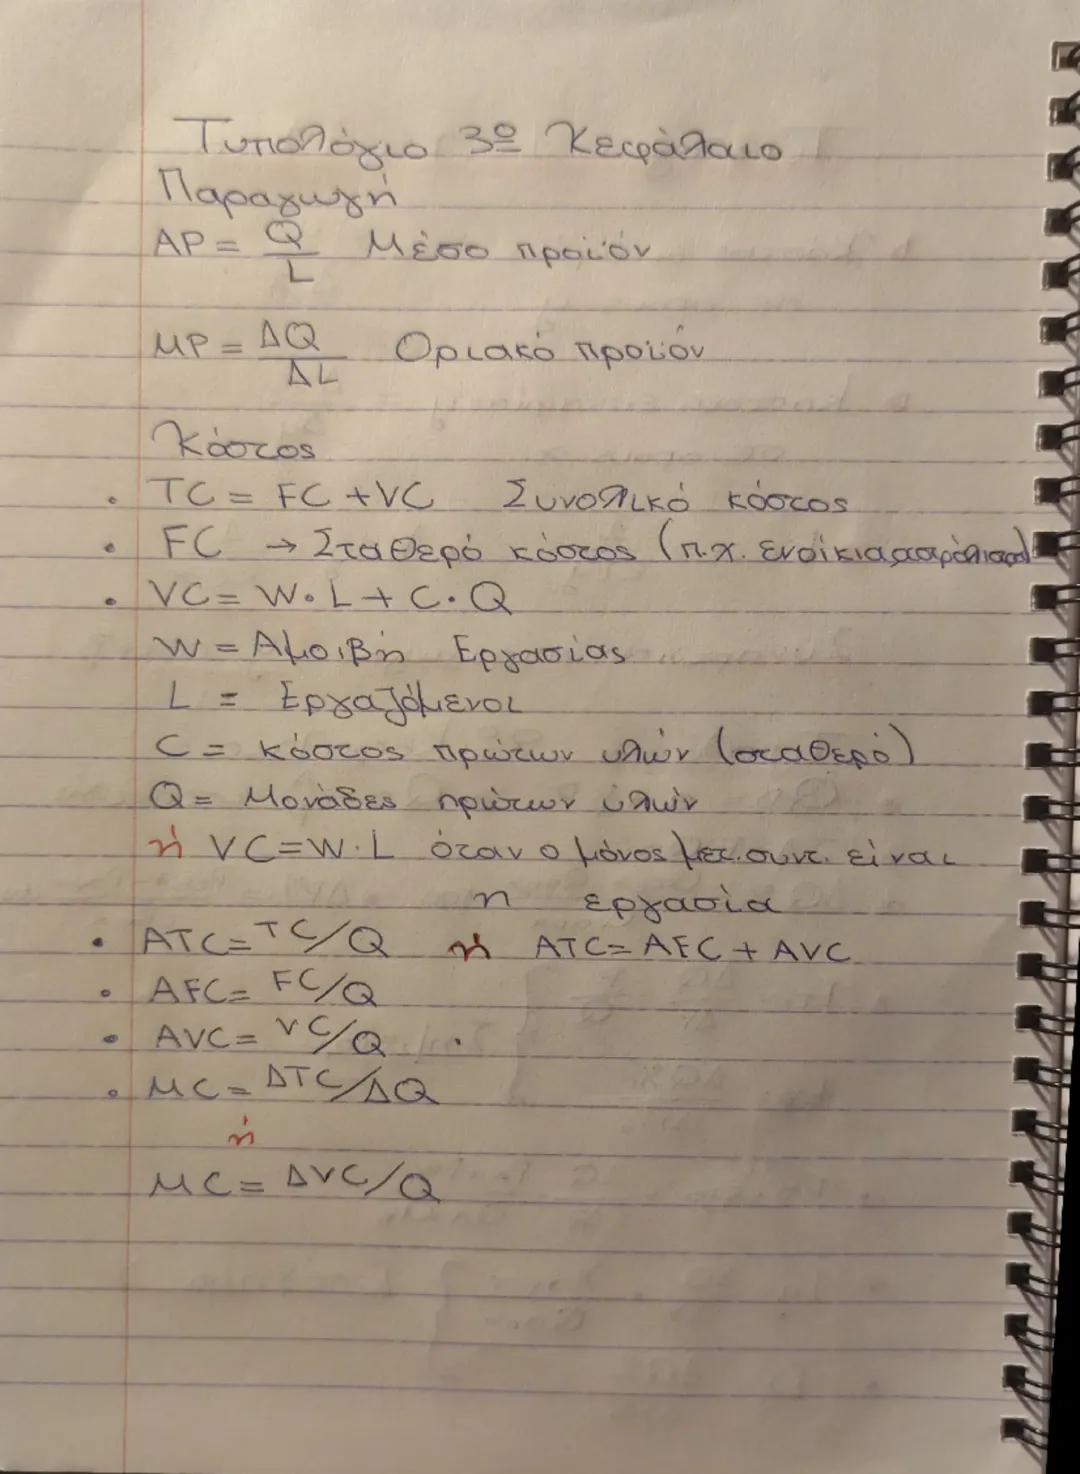 Τυπολόγιο 3º Κεφάλαιο
Παραγωγή
AP = Q/L Μέσο προϊόν
MP = ΔQ/ΔL Οριακό προϊόν
Κόστος
• TC = FC + VC Συνολικό κόστος
• FC → Σταθερό κόστος (π.χ. ενοίκια,
• VC = W · L + C · Q
W = Αμοιβή Εργασίας
L = Εργαζόμενοι
C = κόστος πρώτων υλών (σταθερό)
Q = Μονάδες πρώτων υλών
ή VC = W · L όταν ο μόνος μετ. συντ. είναι
η εργασία
• ATC = TC/Q ή ATC = AFC + AVC
• AFC = FC/Q
• AVC = VC/Q
• MC = ΔTC/ΔQ
ή
MC = ΔVC/Q